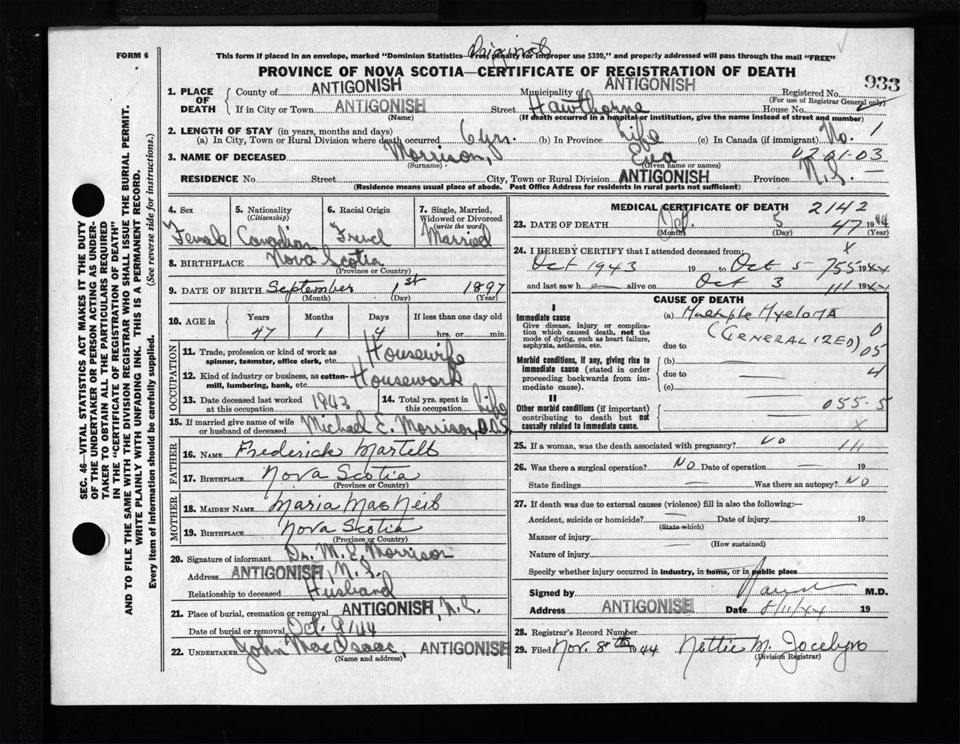 FORM 6
Original
This form if placed in an envelope, marked "Dominion Statistics—Free, penalty for improper use $300," and properly addressed will pass through the mail "FREE"
PROVINCE OF NOVA SCOTIA—CERTIFICATE OF REGISTRATION OF DEATH
933
1. PLACE OF DEATH County of ANTIGONISH Municipality of ANTIGONISH Registered No.
(For use of Registrar General only)
If in City or Town ANTIGONISH Street Hawthorne House No.
(Name) (If death occurred in a hospital or institution, give the name instead of street and number)
2. LENGTH OF STAY (in years, months and days)
(a) In City, Town or Rural Division where death occurred 6 yrs. (b) In Province Life (c) In Canada (if immigrant) No. 1
3. NAME OF DECEASED Morrison, Eva 02-01-03
(Surname) (Given name or names)
RESIDENCE No. Street City, Town or Rural Division ANTIGONISH Province N.S.
(Residence means usual place of abode. Post Office Address for residents in rural parts not sufficient)
4. Sex 5. Nationality 6. Racial Origin 7. Single, Married, Widowed or Divorced
(Citizenship) (write the word)
Female Canadian French Married
8. BIRTHPLACE Nova Scotia
(Province or Country)
9. DATE OF BIRTH September 1st 1897
(Month) (Day) (Year)
10. AGE in Years Months Days If less than one day old
47 1 4 hrs. or min.
OCCUPATION
11. Trade, profession or kind of work as spinner, teamster, office clerk, etc. Housewife
12. Kind of industry or business, as cotton-mill, lumbering, bank, etc. Housework
13. Date deceased last worked at this occupation 1943 14. Total yrs. spent in this occupation Life
15. If married give name of wife or husband of deceased Michael E. Morrison, D.D.S.
FATHER
16. NAME Frederick Martell
17. BIRTHPLACE Nova Scotia
(Province or Country)
MOTHER
18. MAIDEN NAME Maria MacNeil
19. BIRTHPLACE Nova Scotia
(Province or Country)
20. Signature of informant Dr. M. E. Morrison
Address ANTIGONISH, N.S.
Relationship to deceased Husband
21. Place of burial, cremation or removal ANTIGONISH, N.S.
Date of burial or removal Oct. 9/44
22. UNDERTAKER John MacIsaac, ANTIGONISH
(Name and address)
MEDICAL CERTIFICATE OF DEATH 2142
23. DATE OF DEATH Oct. 5 47 1944
(Month) (Day) (Year)
24. I HEREBY CERTIFY that I attended deceased from: X
Oct 1943 19 to Oct 5 755 1944
and last saw h alive on Oct 3 111 1944
CAUSE OF DEATH
I
Immediate cause (a) Multiple Myeloma
Give disease, injury or complication which caused death, not the mode of dying, such as heart failure, asphyxia, asthenia, etc.
(GENERALIZED) 0
due to 05
Morbid conditions, if any, giving rise to immediate cause (stated in order proceeding backwards from immediate cause).
(b) 4
due to
(c)
II
Other morbid conditions (if important) contributing to death but not causally related to immediate cause.
055-5
X
25. If a woman, was the death associated with pregnancy? NO 111
26. Was there a surgical operation? NO Date of operation 19
State findings Was there an autopsy? NO
27. If death was due to external causes (violence) fill in also the following:—
Accident, suicide or homicide? Date of injury 19
(State which)
Manner of injury
(How sustained)
Nature of injury
Specify whether injury occurred in industry, in home, or in public place
Signed by M.D.
Address ANTIGONISH Date 8/11/44 19
28. Registrar's Record Number
29. Filed Nov. 8th 1944 Nettie M. Jocelyn
(Division Registrar)
SEC. 46—VITAL STATISTICS ACT MAKES IT THE DUTY
OF THE UNDERTAKER OR PERSON ACTING AS UNDER-
TAKER TO OBTAIN ALL THE PARTICULARS REQUIRED
IN THE "CERTIFICATE OF REGISTRATION OF DEATH"
AND TO FILE THE SAME WITH THE DIVISION REGISTRAR WHO SHALL ISSUE THE BURIAL PERMIT.
WRITE PLAINLY WITH UNFADING INK. THIS IS A PERMANENT RECORD.
Every item of information should be carefully supplied. (See reverse side for instructions.)